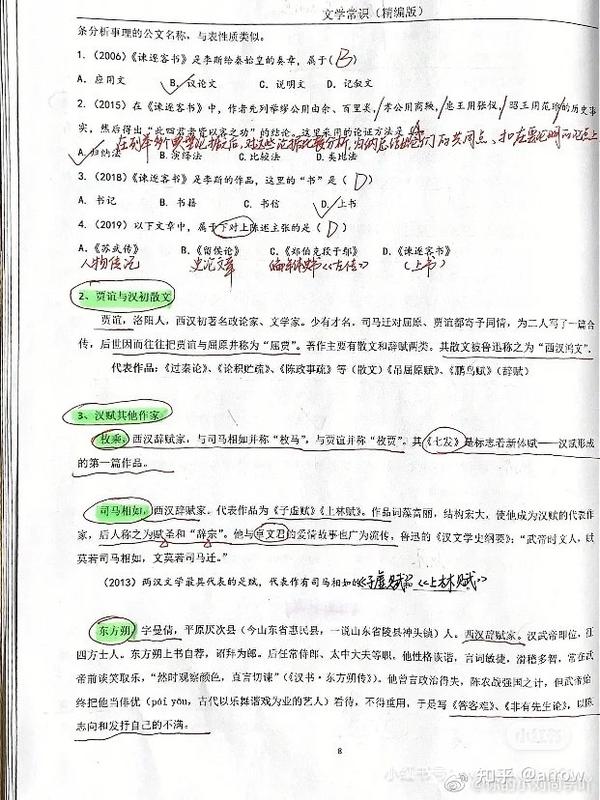 文学常识（精编版）
条分析事理的公文名称，与表性质类似。
1.（2006）《谏逐客书》是李斯给秦始皇的奏章，属于（B）
A. 应用文 B. 议论文 C. 说明文 D. 记叙文
2.（2015）在《谏逐客书》中，作者先列举缪公用由余、百里奚，孝公用商鞅，惠王用张仪，昭王用范雎的历史事
实，然后得出“此四君者皆以客之功”的结论。这里采用的论证方法是
在列举分析典型论据之后，对这些论据比较分析，归纳总结出它们的共同点、扣在要论证的论点上
A. 归纳法 B. 演绎法 C. 比较法 D. 类比法
3.（2018）《谏逐客书》是李斯的作品，这里的“书”是（D）
A. 书记 B. 书籍 C. 书信 D. 上书
4.（2019）以下文章中，属于下对上陈述主张的是（D）
A.《苏武传》 B.《留侯论》 C.《郑伯克段于鄢》 D.《谏逐客书》
人物传记 史论文章 编年体史书《左传》 （上书）
2、贾谊与汉初散文
贾谊，洛阳人，西汉初著名政论家、文学家。少有才名，司马迁对屈原、贾谊都寄予同情，为二人写了一篇合
传，后世因而往往把贾谊与屈原并称为“屈贾”。著作主要有散文和辞赋两类。其散文被鲁迅称之为“西汉鸿文”.
代表作品：《过秦论》、《论积贮疏》、《陈政事疏》等（散文）《吊屈原赋》、《鹏鸟赋》（辞赋）
3、汉赋其他作家
枚乘，西汉辞赋家，与司马相如并称“枚马”，与贾谊并称“枚贾”。其《七发》是标志着新体赋——汉赋形成
的第一篇作品。
司马相如，西汉辞赋家。代表作品为《子虚赋》《上林赋》。作品词藻富丽，结构宏大，使他成为汉赋的代表作
家，后人称之为赋圣和“辞宗”。他与卓文君的爱情故事也广为流传，鲁迅的《汉文学史纲要》：“武帝时文人，赋
莫若司马相如，文莫若司马迁。”
（2013）两汉文学最具代表的是赋，代表作有司马相如的《子虚赋》《上林赋》
东方朔，字曼倩，平原厌次县（今山东省惠民县，一说山东省陵县神头镇）人。西汉辞赋家。汉武帝即位，征
四方士人。东方朔上书自荐，诏拜为郎。后任常侍郎、太中大夫等职，他性格诙谐，言词敏捷，滑稽多智，常在武
帝前谈笑取乐，“然时观察颜色，直言切谏”（《汉书·东方朔传》）。他曾言政治得失，陈农战强国之计，但武帝始
终把他当俳优（pái yōu，古代以乐舞谐戏为业的艺人）看待，不得重用，于是写《答客难》、《非有先生论》，以陈
志向和发抒自己的不满。
8
知乎 @arrow